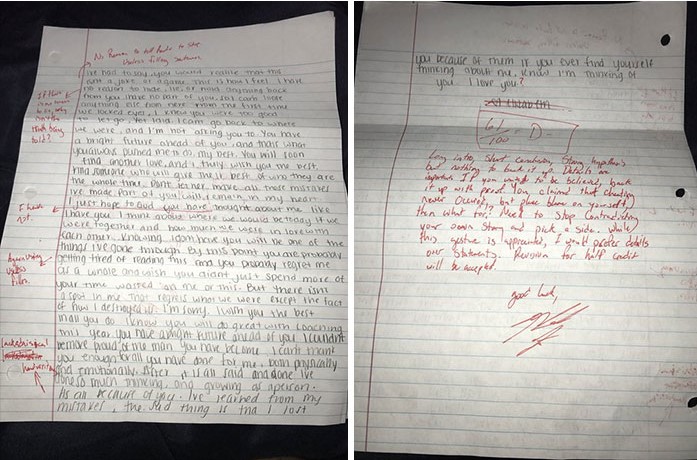 No Reason to tell Reader to stop
useless filling sentence.
had to say, you would realize that this
isn't a joke, or a game. This is how I feel. I have
no reason to hide, lie, or hold anything back
from you. I have no part of you, so I can't lose
anything else from here. From the first time
we locked eyes, I knew you were too good
to let go. Yet I did. I can go back to where
we were, and I'm not asking you to. You have
a bright future ahead of you, and that's what
you always pushed me to do, my best. You will soon
find another love, and I truly wish you the best.
Find someone who will give their best of who they are
the whole time. Don't let her make all those mistakes
I've made. Part of you will remain in my heart.
I just hope to God you have thought about me like
I have you. I think about where we would be today if we
were together and how much we were in love with
each other. Knowing I don't have you will be one of the
things I've gone through. By this point you are probably
getting tired of reading this and you probably regret me
as a whole and wish you didn't just spend more of
your time wasted on me or this. But there isn't
a spot in me that regrets what we were except the fact
of how I destroyed us. I'm sorry. I wish you the best
in all you do. I know you will do great with coaching
this year. You have a bright future ahead of you. I couldn't
be more proud of the man you have become. I can't thank
you enough for all you have done for me, both physically
and emotionally. After it is all said and done I've
done so much thinking, and growing as a person.
As an because of you. I've learned from my
mistakes, the sad thing is that I lost
you because of them. If you ever find yourself
thinking about me, know I'm thinking of
you. I love you?
61/100 D-
Long intro, short conclusion, strong hypothesis
but nothing to back it up. Details are
important. If you want to be believed, back
it up with proof. You claimed that cheating
never occurred, but place blame on yourself,
then what for? Need to stop contradicting
your own story and pick a side. While
this gesture is appreciated, I would prefer details
over statements. Revision for half credit
will be accepted.
good luck,